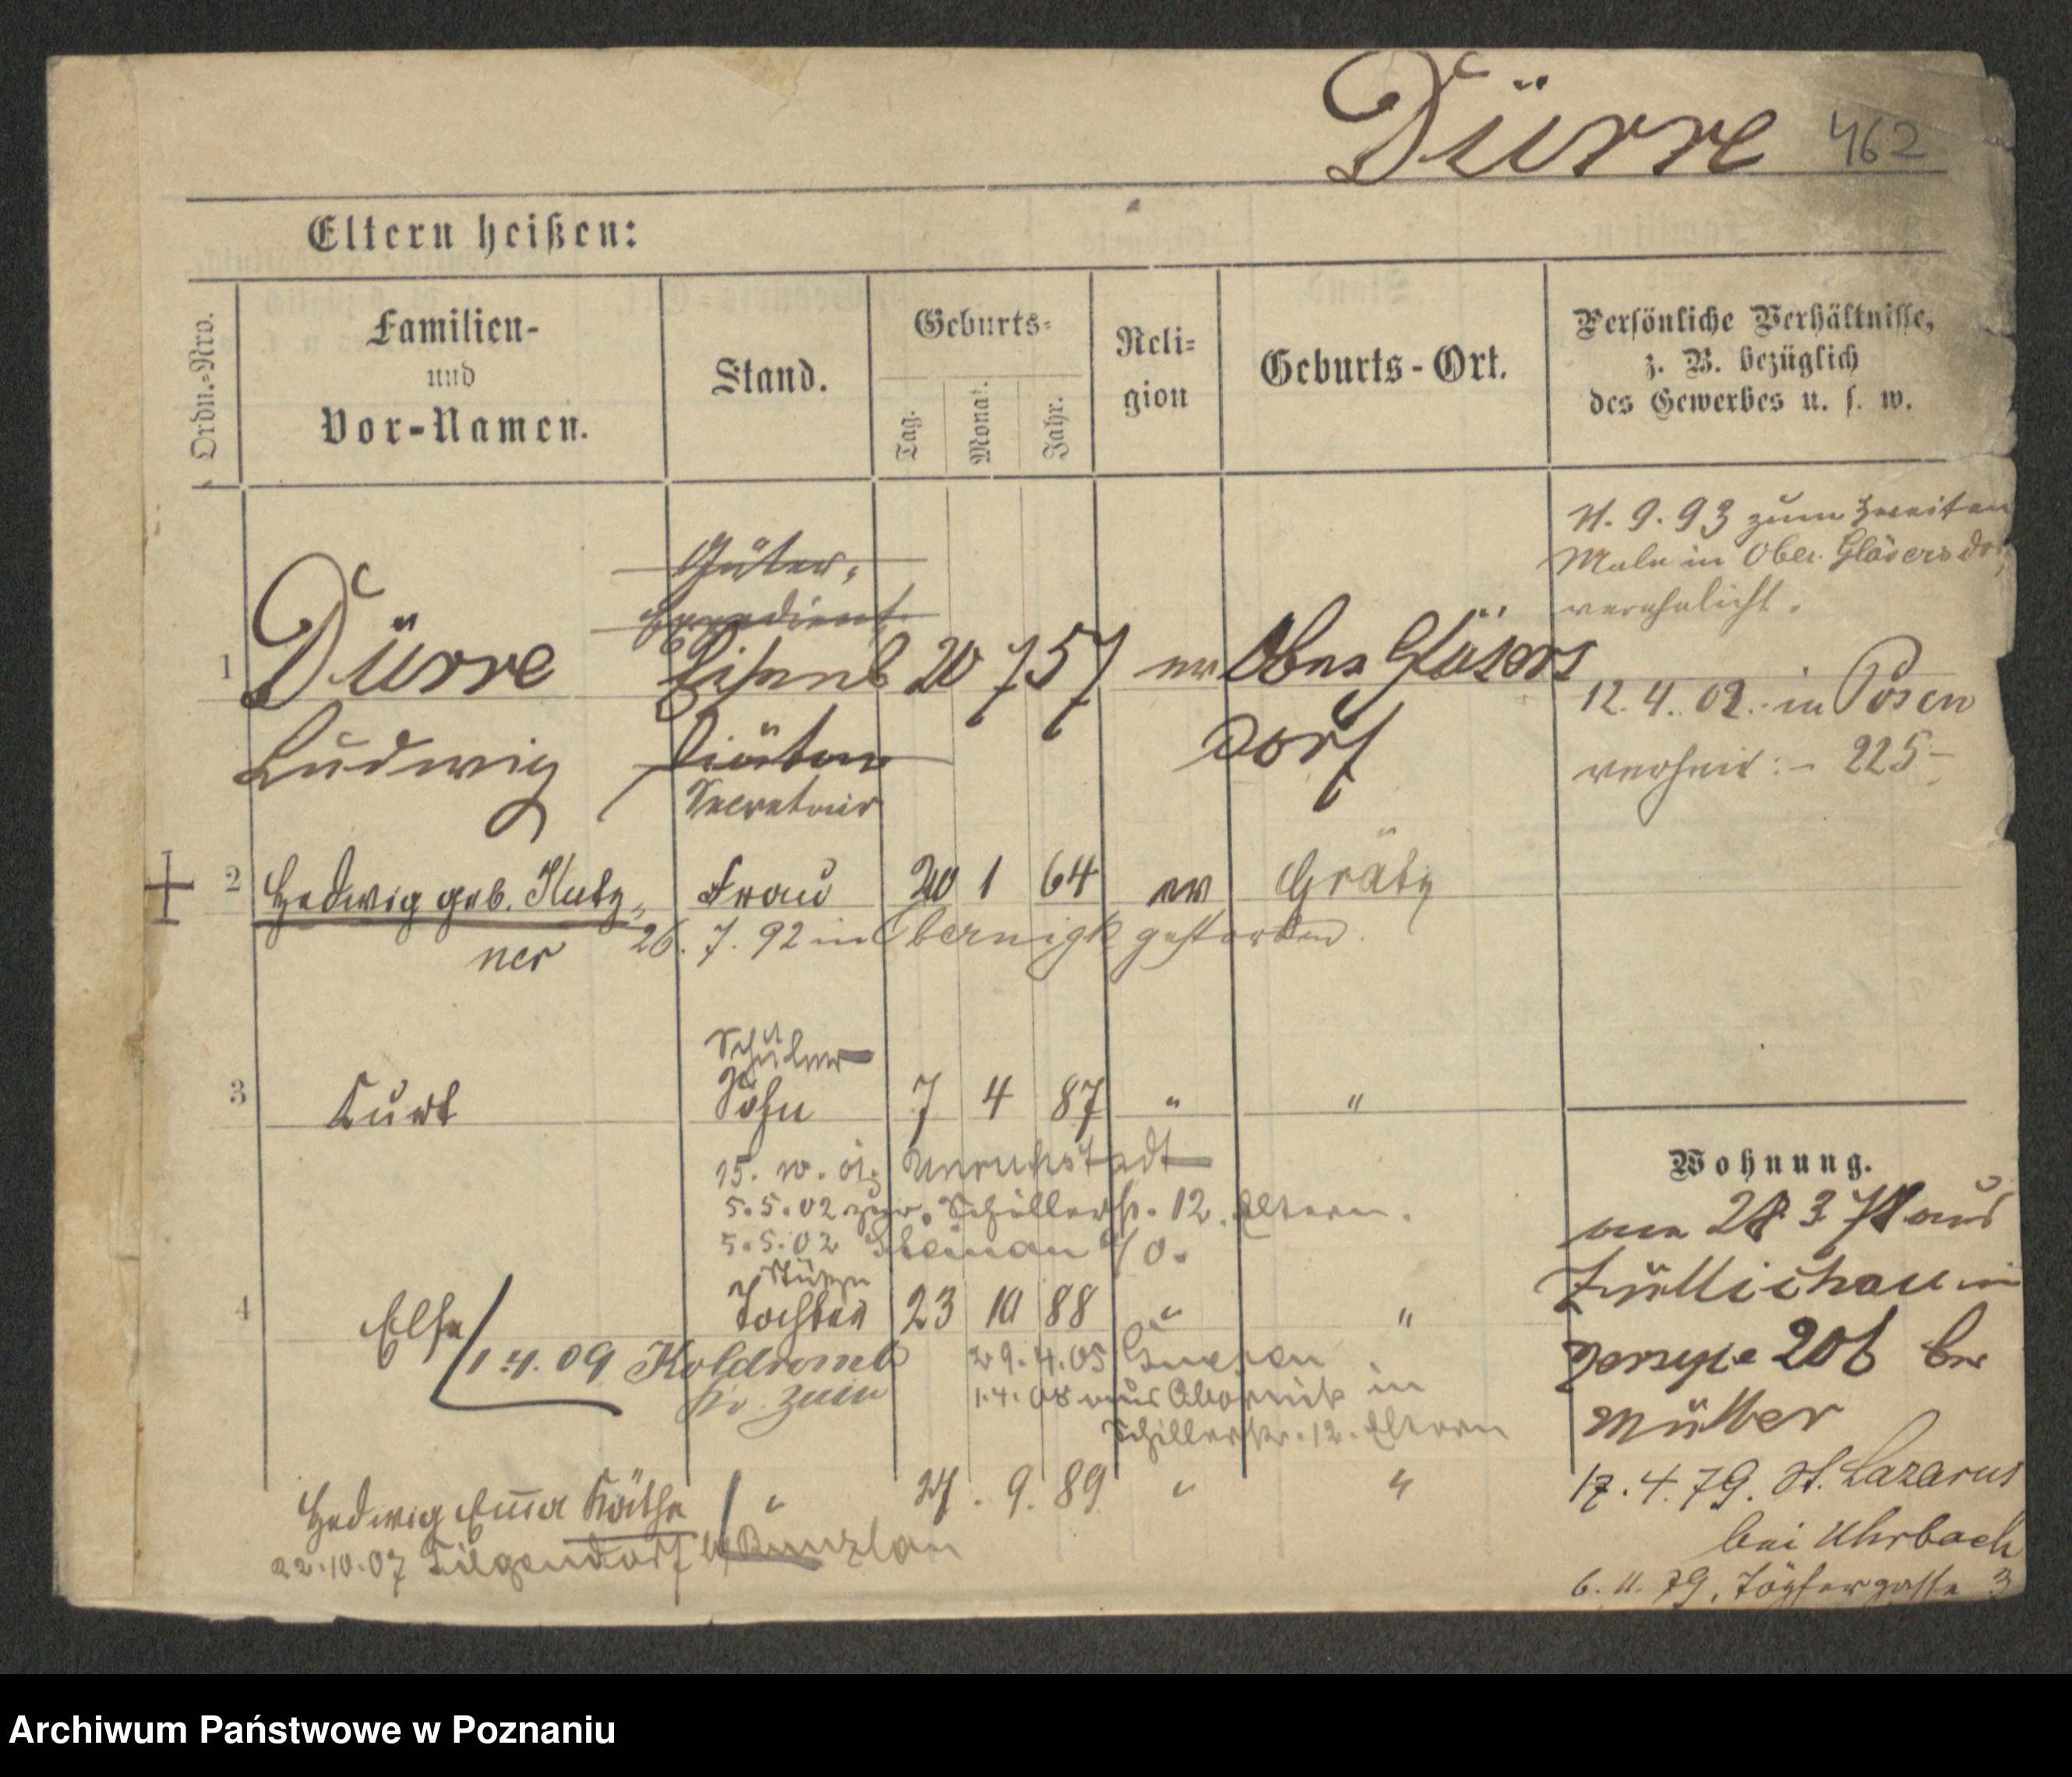 Dürre 462
Eltern heißen:
Ordn.-Nro.
Familien-
und
Vor-Namen.
Stand.
Geburts-
Tag. Monat. Jahr.
Reli-
gion
Geburts-Ort.
Persönliche Verhältnisse,
z. B. bezüglich
des Gewerbes u. s. w.
9. 93 zum zweiten
Male in Ober Gläsersdorf
verehelicht.
Güter-
Expedient
1 Dürre Eisenb 20 7 57 ev Ober Gläsers
Ludwig Diätar dorf
Secretair
12. 4. 02. in Posen
verheir: - 225 -
2 Hedwig geb. Kutz- Frau 20 1 64 ev Grätz
ner 26. 7. 92 in Obernigk gestorben.
Schüler
3 Kurt Sohn 7 4 87 " "
15. Unruhstadt
5. 5. 02 zur. Schillerstr. 12. Eltern.
5. 5. 02 Steinau a/O.
Stütze
4 Else Tochter 23 10 88 " "
1. 4. 09 Koldromb 29. 4. 05 Gnesen
Kr. Znin 1. 4. 08 aus Obornik in
Schillerstr. 12. Eltern
Hedwig Emma Käthe " 24. 9. 89 " "
22. 10. 07 Tilgendorf b/ Bunzlau
Wohnung.
aus
Züllichau in
Jersyce 206 bei
Müller
17. 4. 79. St. Lazarus
bei Uhrbach
6. 11. 79. Töpfergasse 3